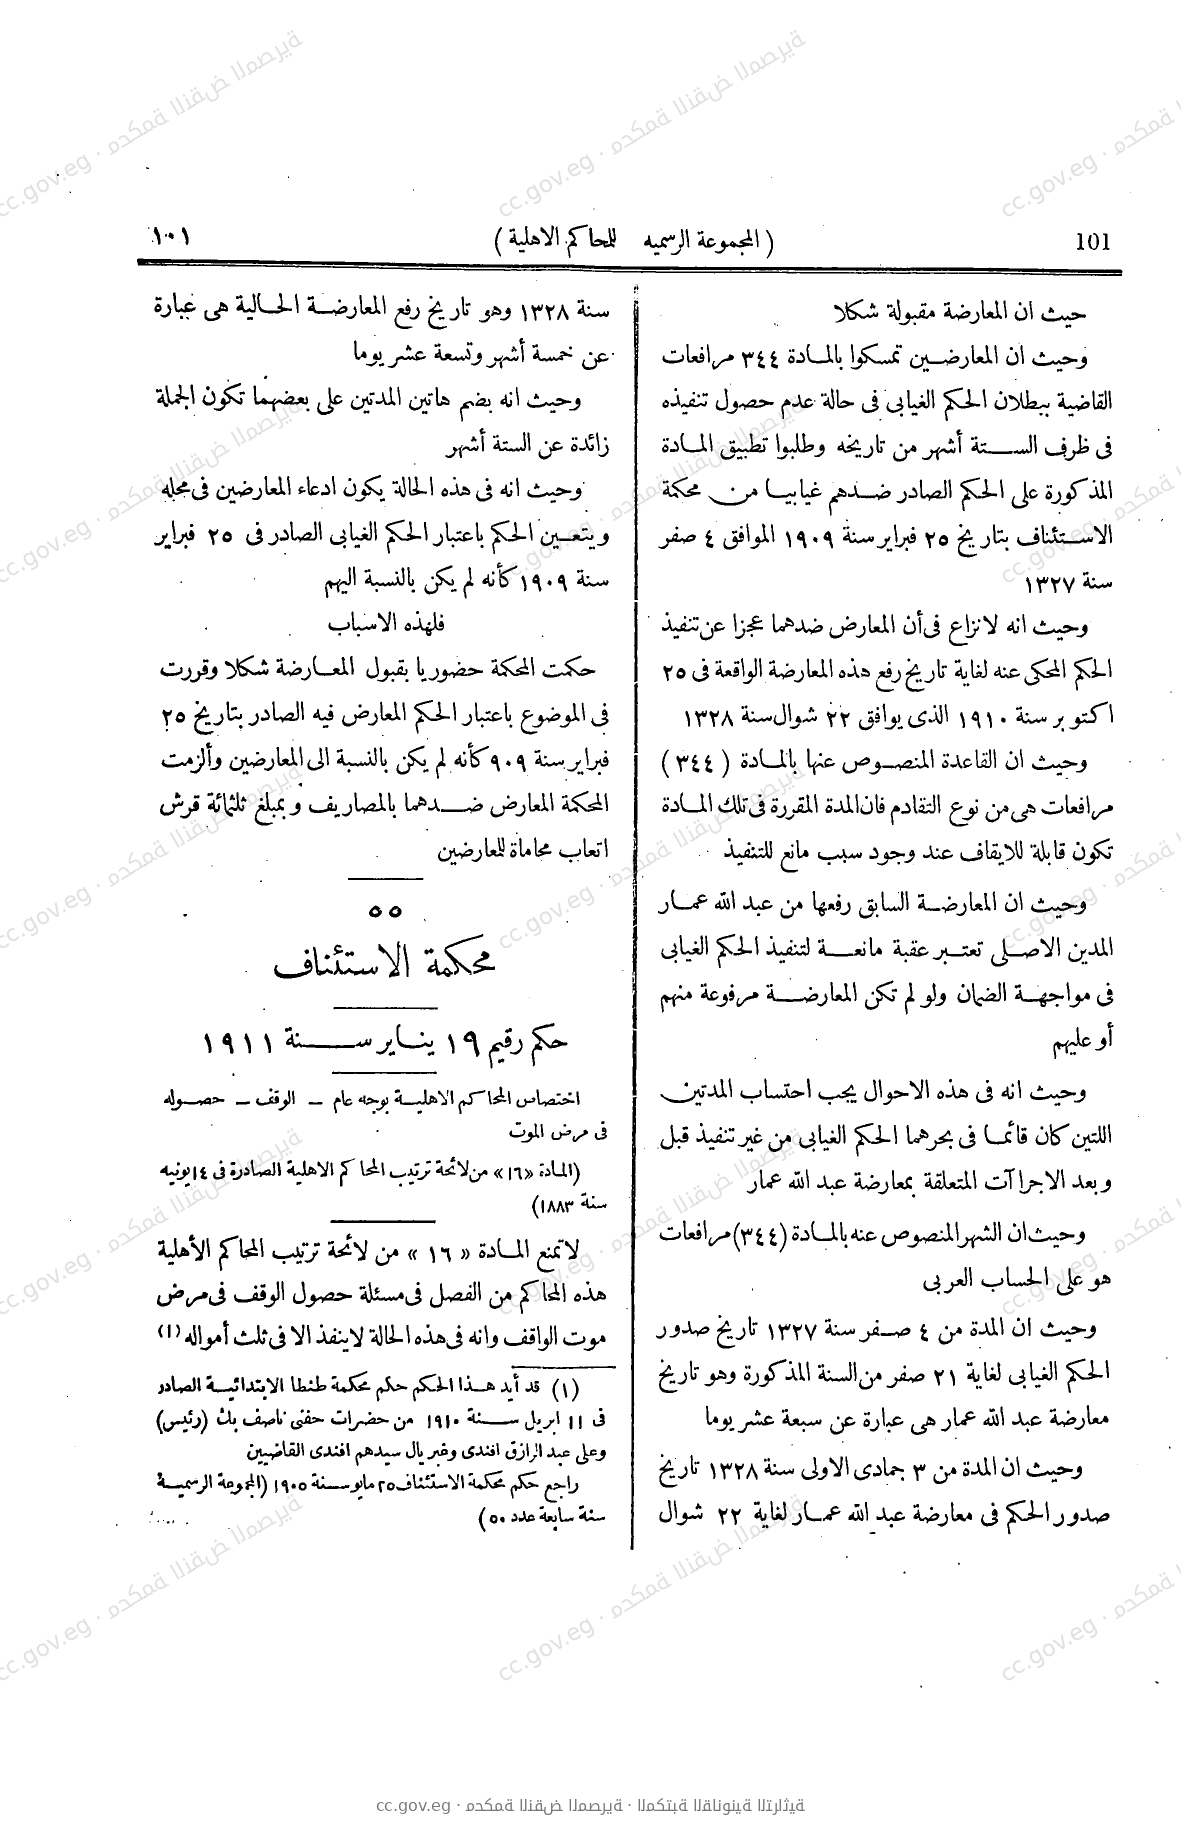 101
( المجموعة الرسميه للمحاكم الاهلية )
١٠١
حيث ان المعارضة مقبولة شكلا
وحيث ان المعارضين تمسكوا بالمادة ٣٤٤ مرافعات
القاضية ببطلان الحكم الغيابى فى حالة عدم حصول تنفيذه
فى ظرف الستة أشهر من تاريخه وطلبوا تطبيق المادة
المذكورة على الحكم الصادر ضدهم غيابيا من محكمة
الاستئناف بتاريخ ٢٥ فبراير سنة ١٩٠٩ الموافق ٤ صفر
سنة ١٣٢٧
وحيث انه لانزاع فى أن المعارض ضدهما عجزا عن تنفيذ
الحكم المحكى عنه لغاية تاريخ رفع هذه المعارضة الواقعة فى ٢٥
اكتوبر سنة ١٩١٠ الذى يوافق ٢٢ شوال سنة ١٣٢٨
وحيث ان القاعدة المنصوص عنها بالمادة ( ٣٤٤ )
مرافعات هى من نوع التقادم فان المدة المقررة فى تلك المادة
تكون قابلة للايقاف عند وجود سبب مانع للتنفيذ
وحيث ان المعارضة السابق رفعها من عبد الله عمار
المدين الاصلى تعتبر عقبة مانعة لتنفيذ الحكم الغيابى
فى مواجهة الضمان ولو لم تكن المعارضة مرفوعة منهم
أو عليهم
وحيث انه فى هذه الاحوال يجب احتساب المدتين
اللتين كان قائما فى بحرهما الحكم الغيابى من غير تنفيذ قبل
وبعد الاجراآت المتعلقة بمعارضة عبد الله عمار
وحيث ان الشهر المنصوص عنه بالمادة (٣٤٤) مرافعات
هو على الحساب العربى
وحيث ان المدة من ٤ صفر سنة ١٣٢٧ تاريخ صدور
الحكم الغيابى لغاية ٢١ صفر من السنة المذكورة وهو تاريخ
معارضة عبد الله عمار هى عبارة عن سبعة عشر يوما
وحيث ان المدة من ٣ جمادى الاولى سنة ١٣٢٨ تاريخ
صدور الحكم فى معارضة عبد الله عمار لغاية ٢٢ شوال
سنة ١٣٢٨ وهو تاريخ رفع المعارضة الحالية هى عبارة
عن خمسة أشهر وتسعة عشر يوما
وحيث انه بضم هاتين المدتين على بعضهما تكون الجملة
زائدة عن الستة أشهر
وحيث انه فى هذه الحالة يكون ادعاء المعارضين فى محله
ويتعين الحكم باعتبار الحكم الغيابى الصادر فى ٢٥ فبراير
سنة ١٩٠٩ كأنه لم يكن بالنسبة اليهم
فلهذه الاسباب
حكمت المحكمة حضوريا بقبول المعارضة شكلا وقررت
فى الموضوع باعتبار الحكم المعارض فيه الصادر بتاريخ ٢٥
فبراير سنة ٩٠٩ كأنه لم يكن بالنسبة الى المعارضين وألزمت
المحكمة المعارض ضدهما بالمصاريف وبمبلغ ثلثمائة قرش
اتعاب محاماة للمعارضين
٥٥
محكمة الاستئناف
حكم رقيم ١٩ يناير سنة ١٩١١
اختصاص المحاكم الاهلية بوجه عام – الوقف – حصوله
فى مرض الموت
(المادة «١٦» من لائحة ترتيب المحاكم الاهلية الصادرة فى ١٤ يونيه
سنة ١٨٨٣)
لا تمنع المادة « ١٦ » من لائحة ترتيب المحاكم الأهلية
هذه المحاكم من الفصل فى مسئلة حصول الوقف فى مرض
موت الواقف وانه فى هذه الحالة لا ينفذ الا فى ثلث أمواله (١)
(١) قد أيد هذا الحكم حكم محكمة طنطا الابتدائية الصادر
فى ١١ ابريل سنة ١٩١٠ من حضرات حفنى ناصف بك (رئيس)
وعلى عبد الرازق افندى وغبريال سيدهم افندى القاضيين
راجع حكم محكمة الاستئناف ٢٥ مايو سنة ١٩٠٥ (المجموعة الرسمية
سنة سابعة عدد ٥٠)
cc.gov.eg · محكمة النقض المصرية · المكتبة القانونية التراثية